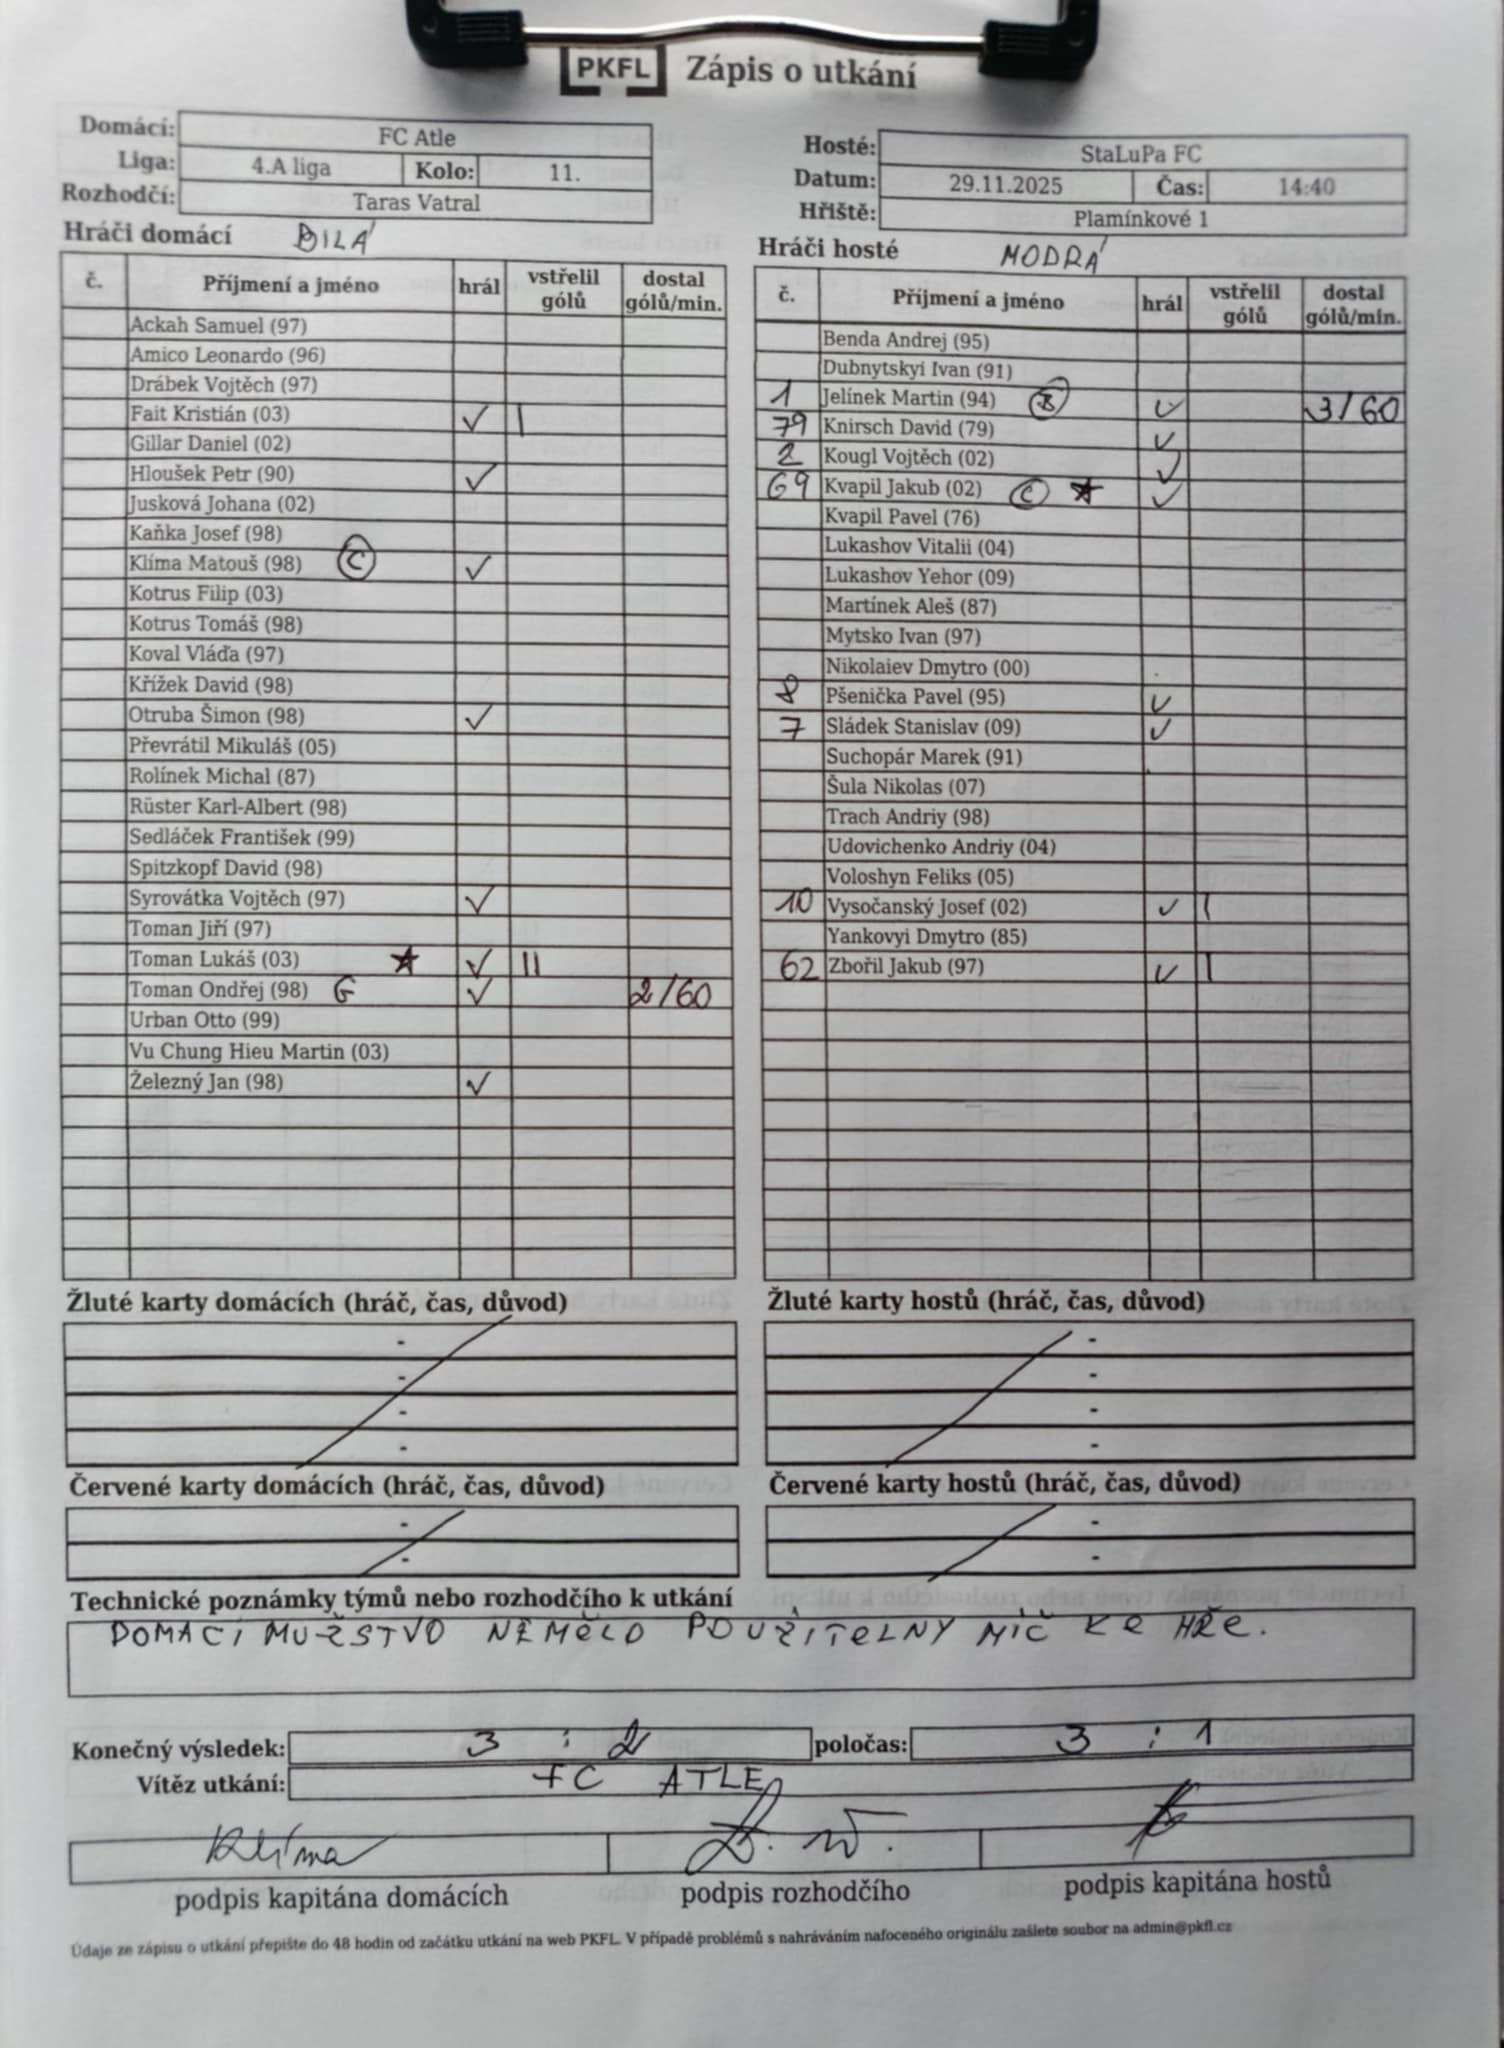 PKFL Zápis o utkání
Domácí: FC Atle
Liga: 4.A liga Kolo: 11.
Rozhodčí: Taras Vatral
Hosté: StaLuPa FC
Datum: 29.11.2025 Čas: 14:40
Hřiště: Plamínkové 1
Hráči domácí BILÁ
č. Příjmení a jméno hrál vstřelil gólů dostal gólů/min.
Ackah Samuel (97)
Amico Leonardo (96)
Drábek Vojtěch (97)
Fait Kristián (03) ✓ I
Gillar Daniel (02)
Hloušek Petr (90) ✓
Jusková Johana (02)
Kaňka Josef (98)
Klíma Matouš (98) C ✓
Kotrus Filip (03)
Kotrus Tomáš (98)
Koval Vláďa (97)
Křížek David (98)
Otruba Šimon (98) ✓
Převrátil Mikuláš (05)
Rolínek Michal (87)
Rüster Karl-Albert (98)
Sedláček František (99)
Spitzkopf David (98)
Syrovátka Vojtěch (97) ✓
Toman Jiří (97)
Toman Lukáš (03) ★ ✓ II
Toman Ondřej (98) G ✓ 2/60
Urban Otto (99)
Vu Chung Hieu Martin (03)
Železný Jan (98) ✓
Hráči hosté MODRÁ
č. Příjmení a jméno hrál vstřelil gólů dostal gólů/min.
Benda Andrej (95)
Dubnytskyi Ivan (91)
1 Jelínek Martin (94) B ✓ 3/60
79 Knirsch David (79) ✓
2 Kougl Vojtěch (02) ✓
69 Kvapil Jakub (02) C ★ ✓
Kvapil Pavel (76)
Lukashov Vitalii (04)
Lukashov Yehor (09)
Martínek Aleš (87)
Mytsko Ivan (97)
Nikolaiev Dmytro (00)
8 Pšenička Pavel (95) ✓
7 Sládek Stanislav (09) ✓
Suchopár Marek (91)
Šula Nikolas (07)
Trach Andriy (98)
Udovichenko Andriy (04)
Voloshyn Feliks (05)
10 Vysočanský Josef (02) ✓ I
Yankovyi Dmytro (85)
62 Zbořil Jakub (97) ✓ I
Žluté karty domácích (hráč, čas, důvod)
-
-
-
-
Žluté karty hostů (hráč, čas, důvod)
-
-
-
-
Červené karty domácích (hráč, čas, důvod)
-
-
Červené karty hostů (hráč, čas, důvod)
-
-
Technické poznámky týmů nebo rozhodčího k utkání
DOMACÍ MUŽSTVO NEMĚLO POUŽITELNY MÍČ KE HŘE.
Konečný výsledek: 3 : 2 poločas: 3 : 1
Vítěz utkání: FC ATLE
Klíma
podpis kapitána domácích podpis rozhodčího podpis kapitána hostů
Údaje ze zápisu o utkání přepište do 48 hodin od začátku utkání na web PKFL. V případě problémů s nahráváním nafoceného originálu zašlete soubor na admin@pkfl.cz